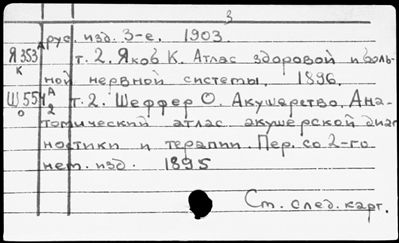 3
рус. изд. 3-е. 1903.
Я 353 к т. 2. Яков К. Атлас здоровой и боль-
ной нервной системы. 1896.
Ш 554 о А 2 т. 2. Шеффер О. Акушерство. Ана-
томический атлас акушерской диаг
ностики и терапии. Пер. со 2-го
нем. изд. 1895
См. след. карт.